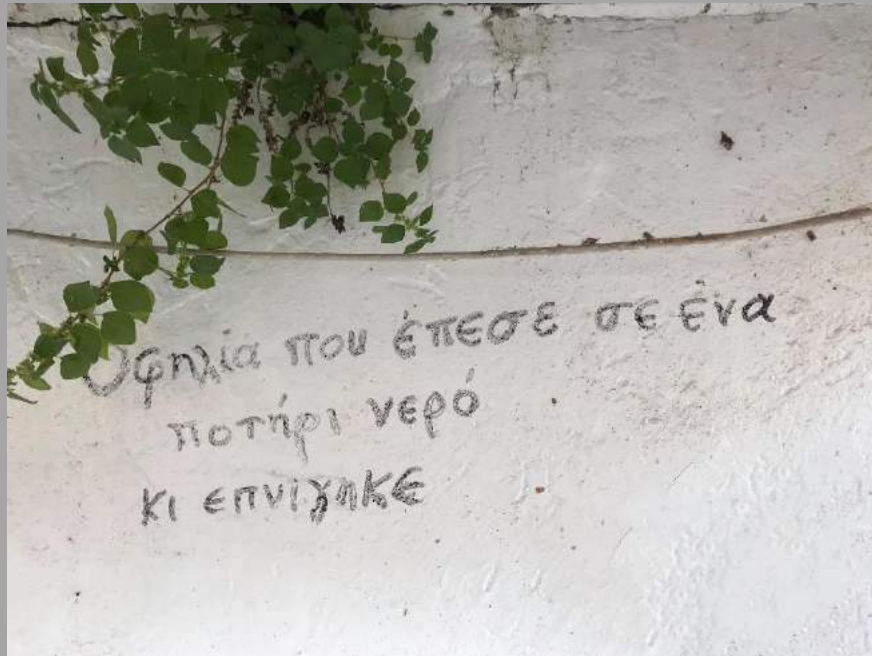 Οφηλία που έπεσε σε ένα
ποτήρι νερό
κι επνίγηκε